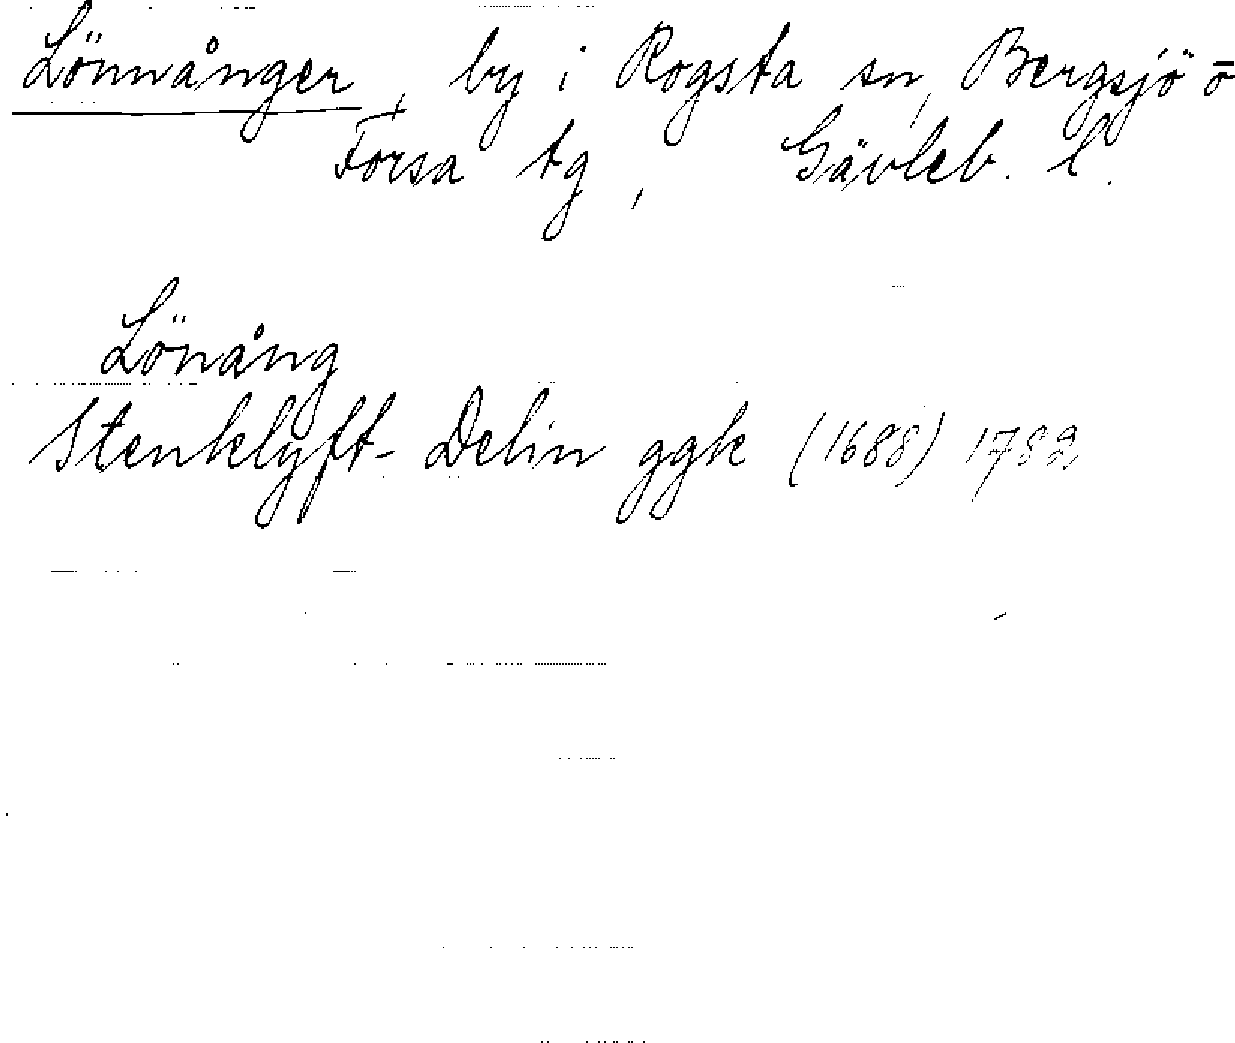 Lönnånger, by i Rogsta sn, Bergsjö o
Forsa tg, Gävleb. l.
Lönång
Stenklyft- Delin ggk (1688) 1782